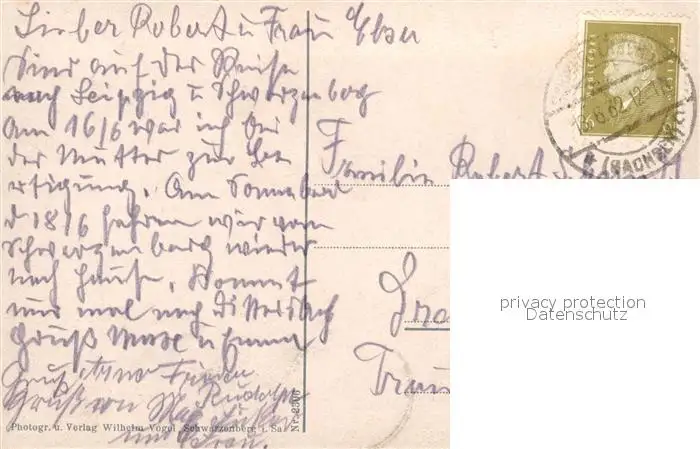 Lieber Robert u Frau Elser
Sind auf der Reise
nach Leipzig u Schwarzenberg
Am 16/6 war ich bei
der Mutter zur Be
erdigung. Am Sonnabend
d 18/6 fahren wir von
Schwarzenberg wieder
nach Hause. Kommt
nur mal nach Dittersbach
Gruß Max u Emma
Gruß Frieda
Rudolf
Gruß von
und Frau.
Photogr. u. Verlag Wilhelm Vogel, Schwarzenberg i. Sa.
Nr. 2306
Familie Robert
(SACHSEN)
privacy protection
Datenschutz